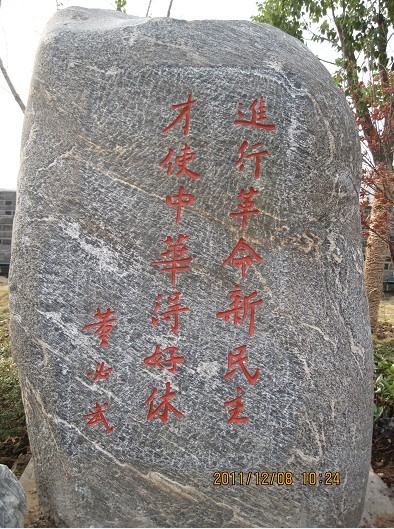 進行革命新民主
才使中華得好休
董必武
2011/12/08 10:24